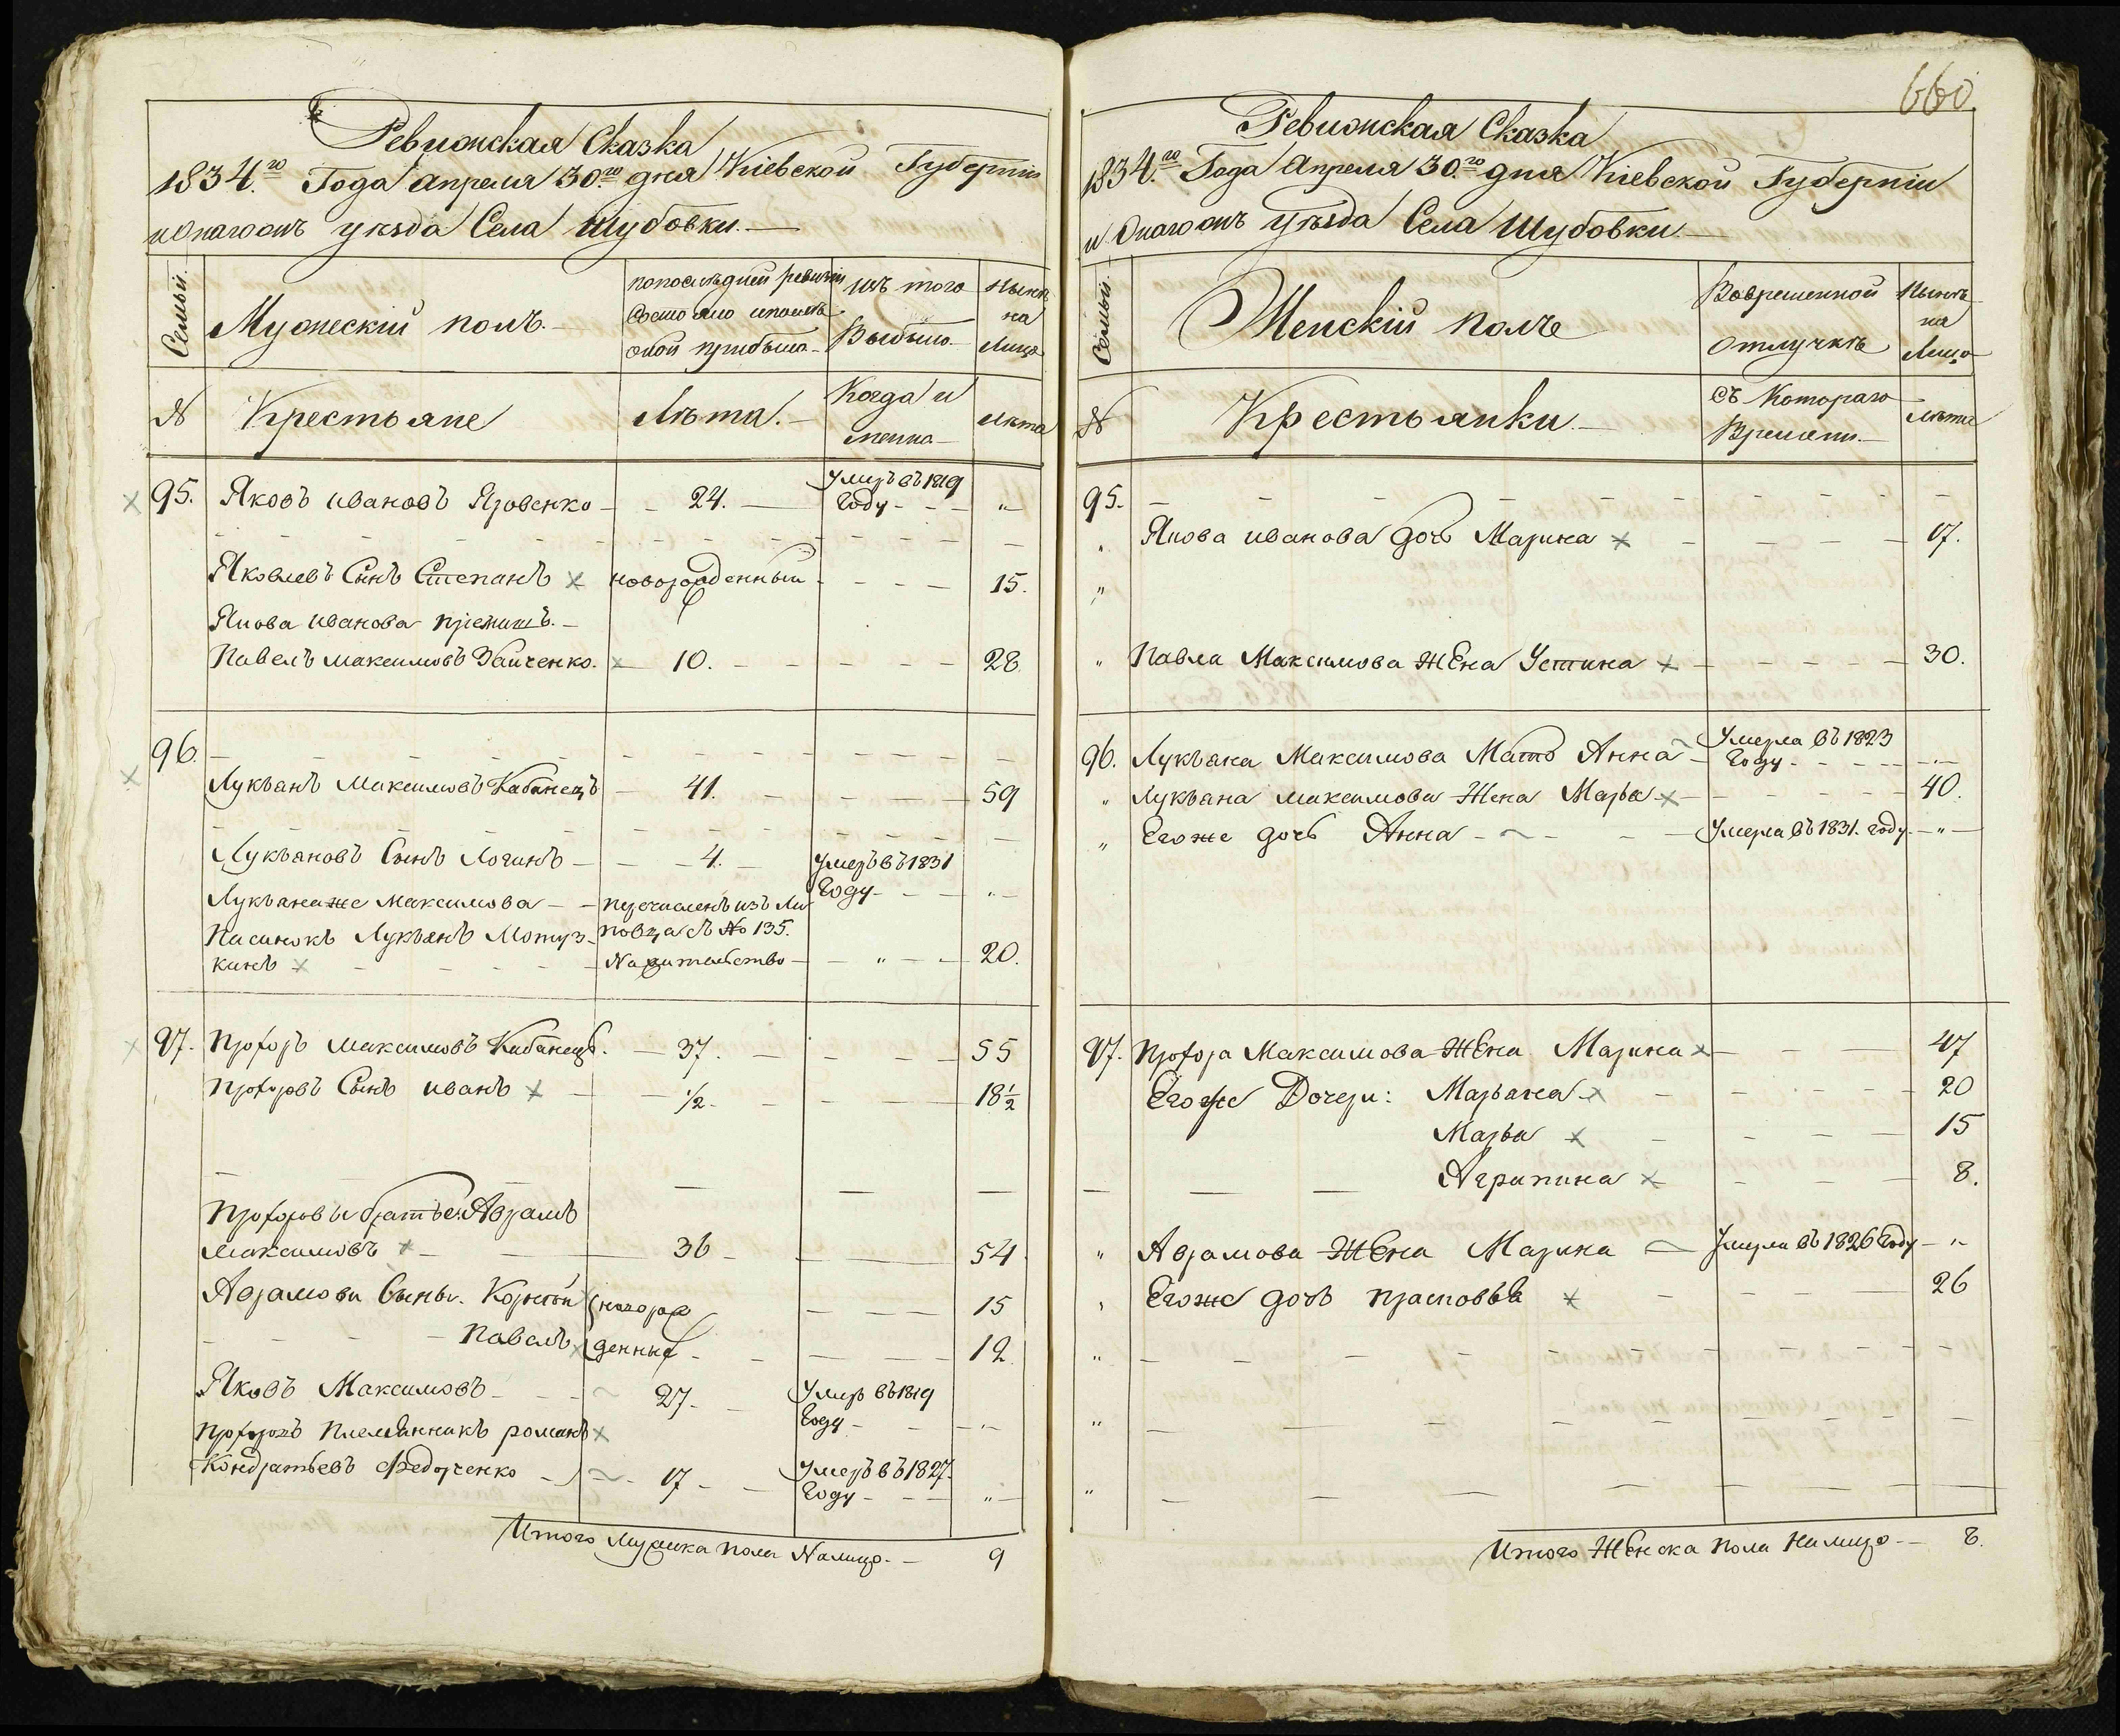 Ревизская Сказка
1834.го Года апреля 30.го дня Кіевской Губерніи
уезда Села Шубовки.
Семьи.
Мужескій полъ.
По последней ревизіи
состояло и после
оной прибыло
изъ того
Выбыло
Ныне
на
Лицо
№
Крестьяне
Лѣта.
Когда и
менно
лета
95. Яковъ ивановъ Яровенко 24. Умеръ въ 1819
Году „
Яковлевъ Сынъ Степанъ новорожденный 15.
Якова иванова пріемышъ.
Павелъ максимовъ Зайченко. 10. 28.
96.
Лукъянъ Максимовъ Кабанецъ 41. 59
Лукъяновъ Сынъ Логинъ 4. Умеръ въ 1831
Году „
Лукъянаже максимова перечисленъ изъ Ли
Пасинокъ Лукъянъ Мотуз повца съ № 135.
кинъ На жительство „ 20.
97. Прохоръ максимовъ Кабанецъ. 37. 55
Прохоровъ Сынъ иванъ 1/2. 18 1/2
Прохоровы братье: Аврамъ
максимовъ 36 54.
Аврамовы Сыны. Корней новорож 15
Павелъ денные 12.
Яковъ Максимовъ 27. Умеръ въ 1819
Году „
Прохоровъ Племянникъ романъ
Кондратьевъ Федорченко 17 Умеръ въ 1827.
Году „
Итого Мужска пола Налицо. 9
660.
Ревизская Сказка
1834.го Года Апреля 30.го дня Кіевской Губерніи
уѣзда Села Шубовки
Семьи.
Женскій полъ
Вовременной
отлучкѣ
Нынѣ
на
Лицо
№
Крестьянки.
Съ Котораго
Времени.
лѣта
95.
„ Якова иванова дочь Марина 17.
„
„ Павла Максимова жена Устина 30.
96. Лукъяна Максимова Мать Анна Умерла въ 1823
Году „
„ Лукъяна максимова жена Марья 40.
„ Егоже дочь Анна Умерла въ 1831. году. „
97. Прохора Максимова жена Марина 47
Егоже Дочери: Марьяна 20
Марья 15
Агрипина 8.
„ Аврамова жена Марина Умерла въ 1826 Году „
„ Егоже дочь прасковья 26
„
„
„
Итого Женска пола Налицо 8.